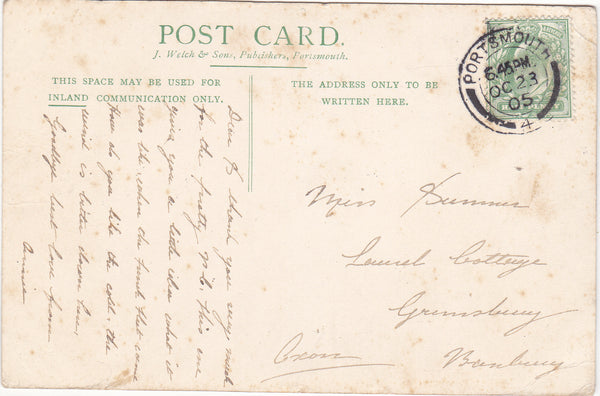 POST CARD.
J. Welch & Sons, Publishers, Portsmouth.
THIS SPACE MAY BE USED FOR
INLAND COMMUNICATION ONLY.
THE ADDRESS ONLY TO BE
WRITTEN HERE.
PORTSMOUTH
6.45PM
OC 23
05
4
Dear B thank you very much
for the pretty p.c. this one
gives you a little idea what it
was like when the fund
how do you like the cold. the
wind is bitter down here,
Goodbye best love from
Annie
Miss Sumner
Laurel Cottage
Grimsbury
Banbury
Oxon